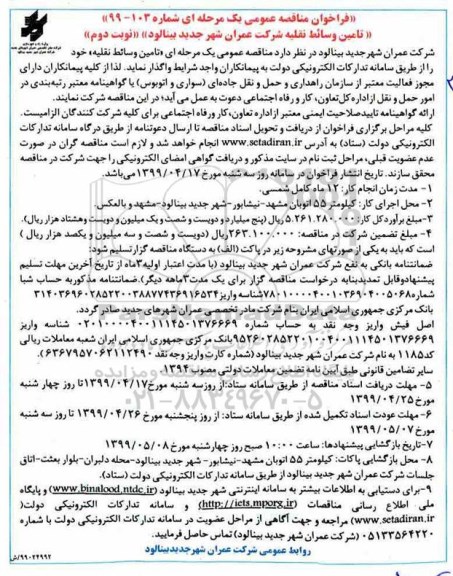 «فراخوان مناقصه عمومی یک مرحله ای شماره ۱۰۳-۹۹»
« تامین وسائط نقلیه شرکت عمران شهر جدید بینالود» «نوبت دوم»
شرکت عمران شهرجدید بینالود در نظر دارد مناقصه عمومی یک مرحله ای «تامین وسائط نقلیه» خود
را از طریق سامانه تدارکات الکترونیکی دولت به پیمانکاران واجد شرایط واگذار نماید. لذا از کلیه پیمانکاران دارای
مجوز فعالیت معتبر از سازمان راهداری و حمل و نقل جاده‌ای (سواری و اتوبوس) یا گواهینامه معتبر رتبه‌بندی در
امور حمل و نقل ازاداره کل تعاون، کار و رفاه اجتماعی دعوت به عمل می آید؛ در این مناقصه شرکت نمایند.
ارائه گواهینامه تاییدصلاحیت ایمنی معتبر ازاداره تعاون،کار ورفاه اجتماعی برای کلیه شرکت کنندگان الزامیست.
کلیه مراحل برگزاری فراخوان از دریافت و تحویل اسناد مناقصه تا ارسال دعوتنامه از طریق درگاه سامانه تدارکات
الکترونیکی دولت (ستاد) به آدرس www.setadiran.ir انجام خواهد شد و لازم است مناقصه گران در صورت
عدم عضویت قبلی، مراحل ثبت نام در سایت مذکور و دریافت گواهی امضای الکترونیکی را جهت شرکت در مناقصه
محقق سازند. تاریخ انتشار فراخوان در سامانه روز سه شنبه مورخ ۱۳۹۹/۰۴/۱۷ می‌باشد.
۱- مدت زمان انجام کار: ۱۲ ماه کامل شمسی.
۲- محل اجرای کار: کیلومتر ۵۵ اتوبان مشهد-نیشابور-شهر جدید بینالود-مشهد و بالعکس.
۳-مبلغ برآوردکل کار:۵.۲۶۱.۲۸۰.۰۰۰ ریال (پنج میلیارد و دویست و شصت و یک میلیون و دویست وهشتاد هزار ریال).
۴- مبلغ تضمین شرکت در مناقصه: ۲۶۳.۱۰۰.۰۰۰ریال (دویست و شصت و سه میلیون و یکصد هزار ریال )
است که باید به یکی از صورتهای مشروحه زیر در پاکت (الف) به دستگاه مناقصه گزارتسلیم شود:
ضمانتنامه بانکی به نفع شرکت عمران شهر جدید بینالود (با مدت اعتبار اولیه۳ماه از تاریخ آخرین مهلت تسلیم
پیشنهادوقابل تمدیدبنابه درخواست مناقصه گزار برای یک مدت۳ماهه دیگر).ضمانتنامه مذکوربه حساب شبا
بانک مرکزی جمهوری اسلامی ایران بنام شرکت مادر تخصصی عمران شهرهای جدید صادر گردد.
سایر تضامین قانونی طبق آیین نامه تضمین معاملات دولتی مصوب ۱۳۹۴.
۵- مهلت دریافت اسناد مناقصه از طریق سامانه ستاد:از روزسه شنبه مورخ۱۳۹۹/۰۴/۱۷تا روز چهار شنبه
مورخ ۱۳۹۹/۰۴/۲۵
۶- مهلت عودت اسناد تکمیل شده از طریق سامانه ستاد: از روز پنجشنبه مورخ ۱۳۹۹/۰۴/۲۶ تا روز سه شنبه
مورخ ۱۳۹۹/۰۵/۰۷
۷-تاریخ بازگشایی پیشنهادها: ساعت ۱۰:۰۰ صبح روز چهارشنبه مورخ ۱۳۹۹/۰۵/۰۸
۸- محل بازگشایی پاکات: کیلومتر ۵۵ اتوبان مشهد-نیشابور-شهر جدید بینالود-محله دلبران-بلوار بعثت-اتاق
جلسات شرکت عمران شهر جدید بینالود از طریق سامانه تدارکات الکترونیکی دولت (ستاد).
۹-برای دستیابی به اطلاعات بیشتر به سامانه اینترنتی شهر جدید بینالود (www.binalood.ntdc.ir) و پایگاه
ملی اطلاع رسانی مناقصات (http://iets.mporg.ir) و سامانه تدارکات الکترونیکی دولت(
www.setadiran.ir) مراجعه و جهت آگاهی از مراحل عضویت در سامانه تدارکات الکترونیکی دولت با شماره
۰۵۱۳۳۵۶۴۲۲۰ (شرکت عمران شهر جدید بینالود) تماس حاصل فرمایید.
روابط عمومی شرکت عمران شهرجدیدبینالود
۹۹۰۲۴۹۹۲/ش